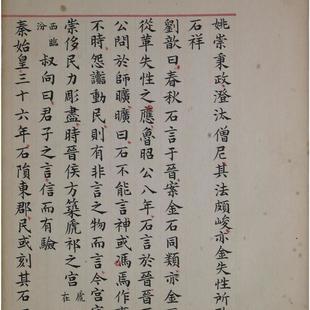 姚崇秉政澄汰僧尼其法頗峻亦金失性所
石祥
劉歆曰春秋石言于晉案金石同類亦金
從革失性之應魯昭公八年石言於晉晉
公問於師曠曠曰石不能言神或馮焉作事
不時怨讟動民則有非言之物而言今宮室
崇侈民力彫盡時晉侯方築虒祁之宮在虒
西臨汾叔向曰君子之言信而有驗
秦始皇三十六年石隕東郡民或刻其石